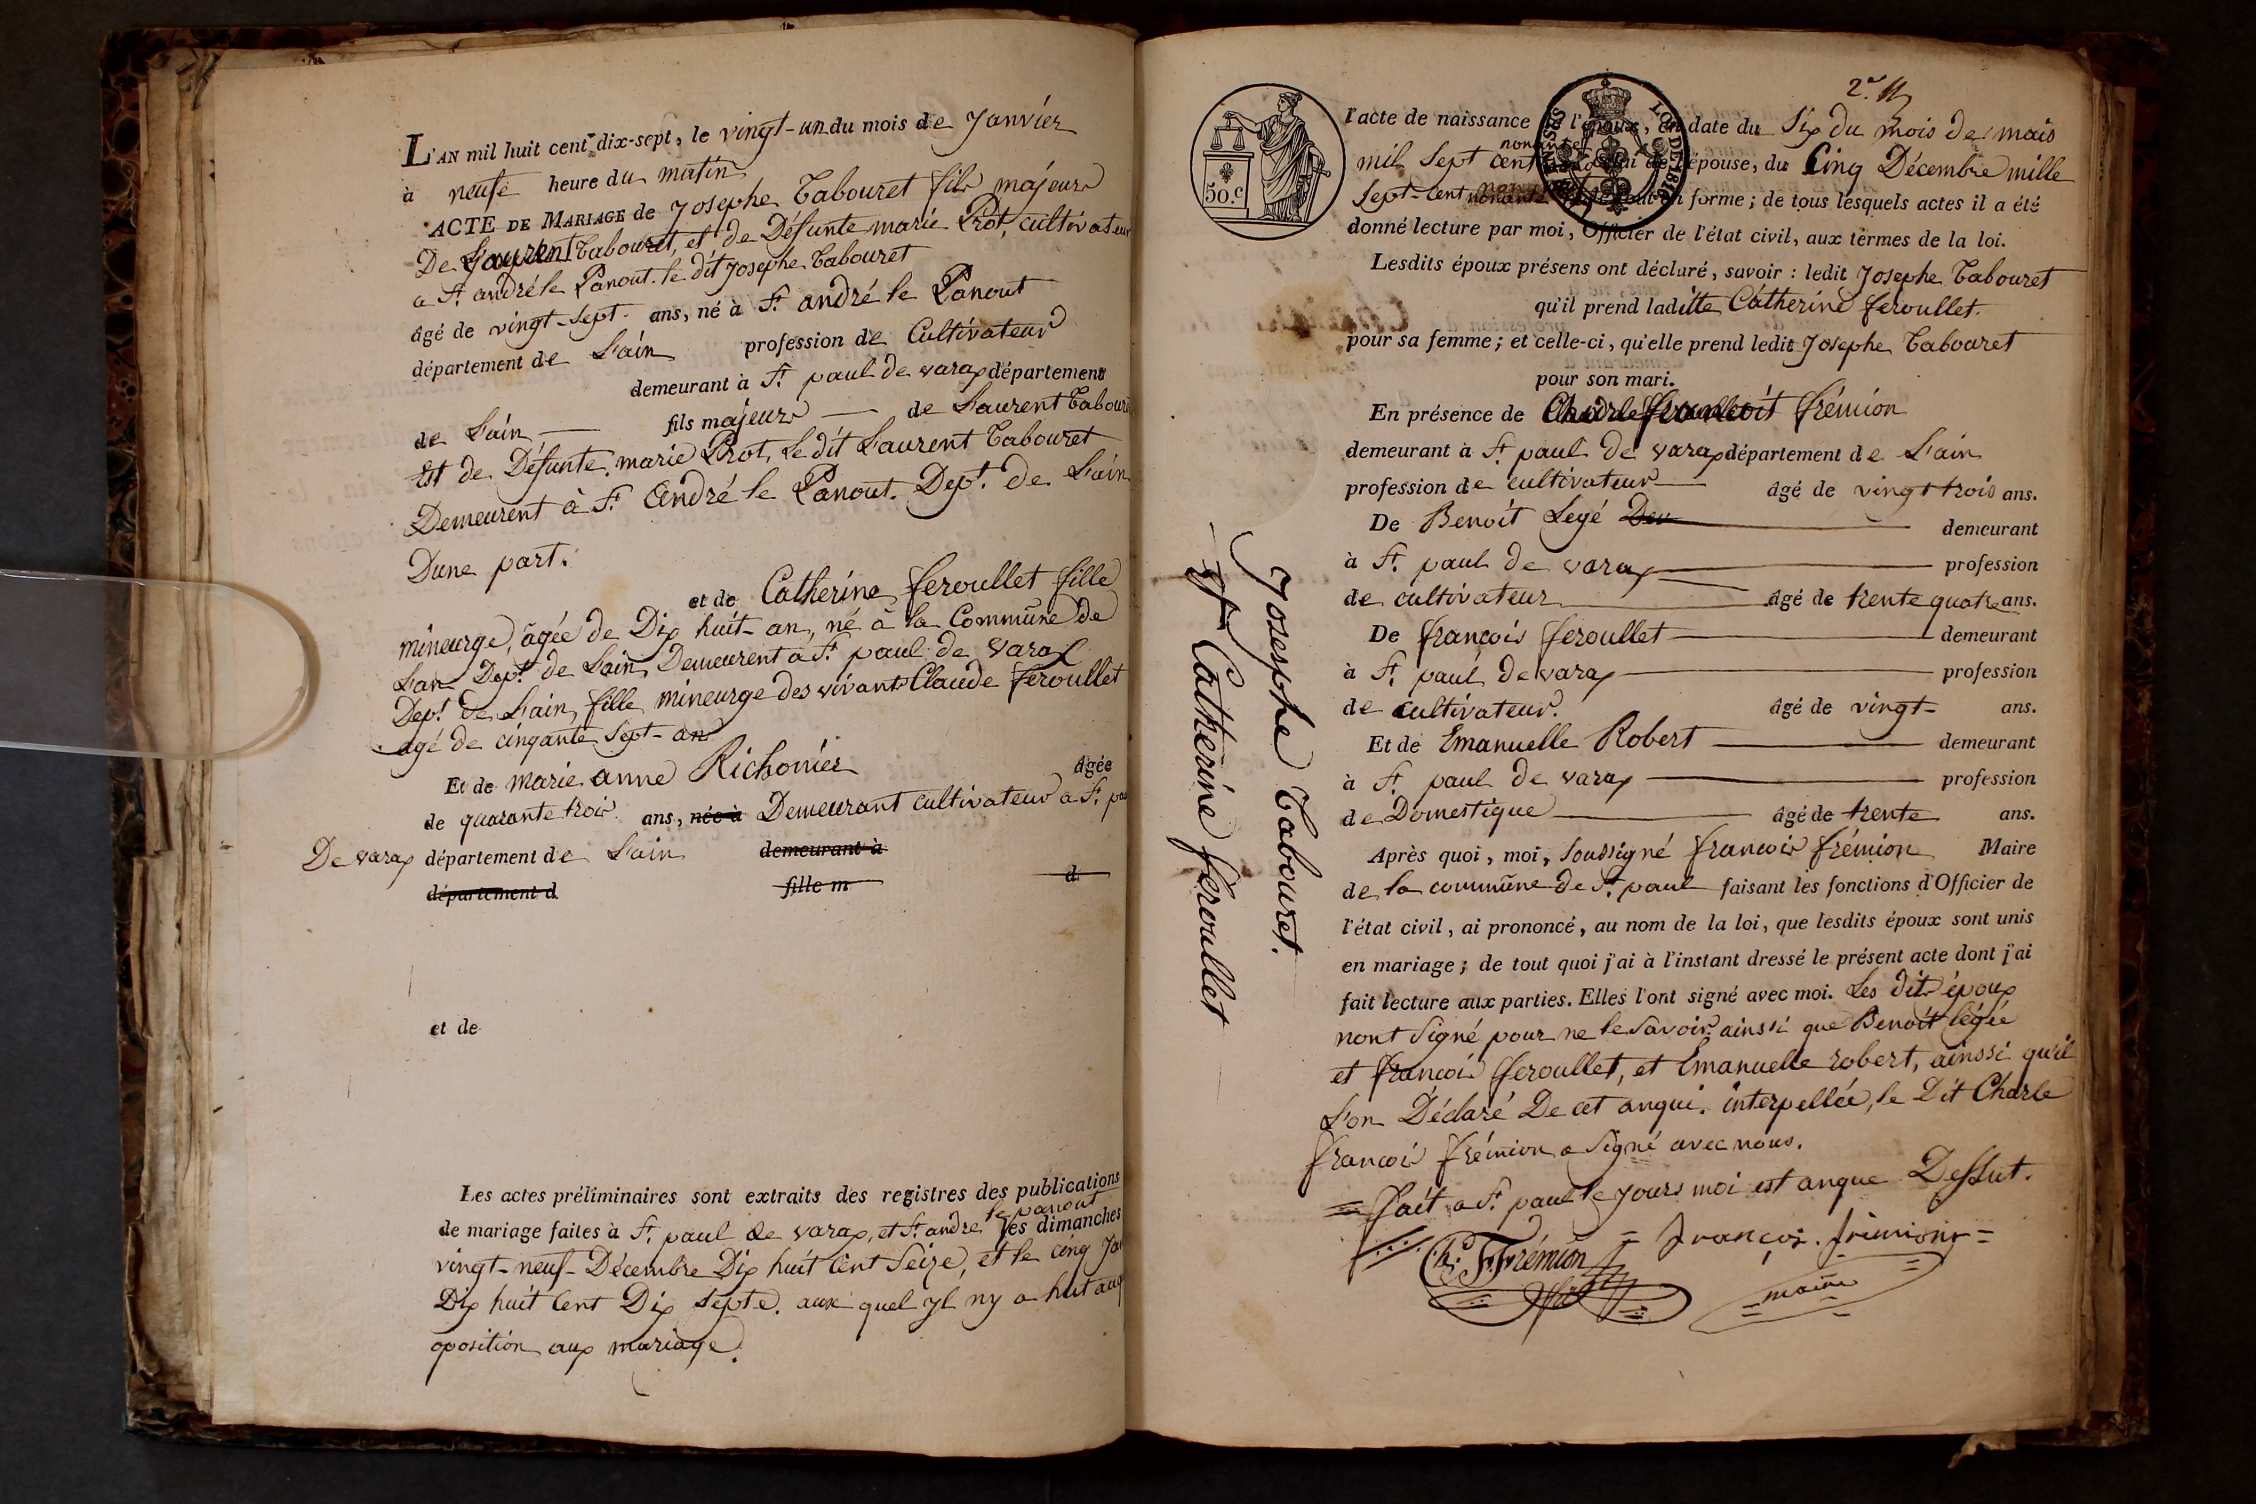 L'AN mil huit cent dix-sept, le vingt-un du mois de Janviér
à neufe heure du matin
ACTE DE MARIAGE de Josephe Tabouret fils majeure
De Laurent Tabouret, et de Défunte marie Prot, cultivateur
a St. andré le Panout. le dit Josephe Tabouret
âgé de vingt-sept ans, né à St. andré le Panout
département de L'ain profession de Cultivateur
demeurant à St. paul de varax département
de L'ain fils majeure de Laurent Tabouret
Et de Défunte marie Prot, Le dit Laurent Tabouret
Demeurent à St. André le Panout. Dept. de L'ain
Dune part.
et de Catherine feroullet fille
mineurge, âgée de Dix huit an, né à la Commune de
Lan Dept. de Lain, Demeurent a St. paul de varax
Dept. de L'ain, fille mineurge des vivants Claude feroullet
agé de cinqante Sept-an
Et de marie anne Richoniér âgée
de quarante trois ans, née à Demeurant cultivateur a St. pau
De varax département de L'ain demeurant à
département d fille m d
et de
Les actes préliminaires sont extraits des registres des publications
le panout
de mariage faites à St. paul de varax, et St. andre les dimanches
vingt-neuf Décembre Dix huit Cent Seize, et le cinq Jan
Dix huit Cent Dix Septe. aux quel yl ny a hut auq
oposition aux mariage.
2e. f
50.c
LOI DE 1816
l'acte de naissance de l'époux, en date du Six du mois de mais
nonante
mil Sept cent celui de l'épouse, du Cinq Décembre mille
Sept-Cent nonante tout en forme; de tous lesquels actes il a été
donné lecture par moi, Officier de l'état civil, aux termes de la loi.
Lesdits époux présens ont déclaré, savoir : ledit Josephe Tabouret
qu'il prend laditte Cátherine feroullet.
pour sa femme; et celle-ci, qu'elle prend ledit Josephe Tabouret
pour son mari.
En présence de Charle francoit frémion
demeurant à St. paul de varax département de L'ain
profession de cultivateur âgé de vingt trois ans.
De Benoit Legé Deu demeurant
à St. paul de varax profession
de cultivateur âgé de trente quatre ans.
De françois feroullet demeurant
à St. paul de varax profession
de cultivateur. âgé de vingt- ans.
Et de Emanuelle Robert demeurant
à St. paul de varax profession
de Domestique âgé de trente ans.
Après quoi, moi, Soussigné francois frémion Maire
de la commune de St. paul faisant les fonctions d'Officier de
l'état civil, ai prononcé, au nom de la loi, que lesdits époux sont unis
en mariage; de tout quoi j'ai à l'instant dressé le présent acte dont j'ai
fait lecture aux parties. Elles l'ont signé avec moi. Les dits époux
nont Signé pour ne le Savoir ainssi que Benoit légée
et françois feroullet, et Emanuelle robert, ainssi qu'il
L'on Déclaré De cet anqui. interpellée, le Dit Charle
francois frémion a Signé avec nous.
Fait a St. paul le Jours moi est anque Dessut.
Ch. F. Frémion
François. frémion
maire
Josesphe Tabouret.
et Catherine feroullet